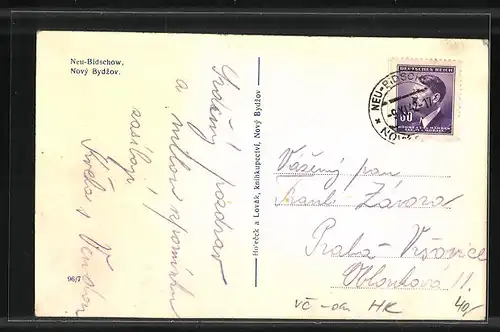 Neu-Bidschow,
Nový Bydžov.
Srdečný pozdrav
a milou vzpomínku
zasílají
96/7
Hořeček a Lovák, knihkupectví, Nový Bydžov
DEUTSCHES REICH
60
NEU-BIDSCHOW
Vážený pan
Frant. Závora
Praha-Vršovice
Oblouková 11.
vč-on HK
40,-